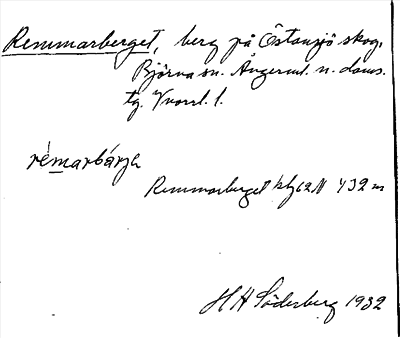 Remmarberget, berg på Östansjö skog,
Björna sn. Ångerml. n. doms.
tg. Vnorrl. l.
rémarbárjə
Remmarberget 432 m
H H Söderberg 1932